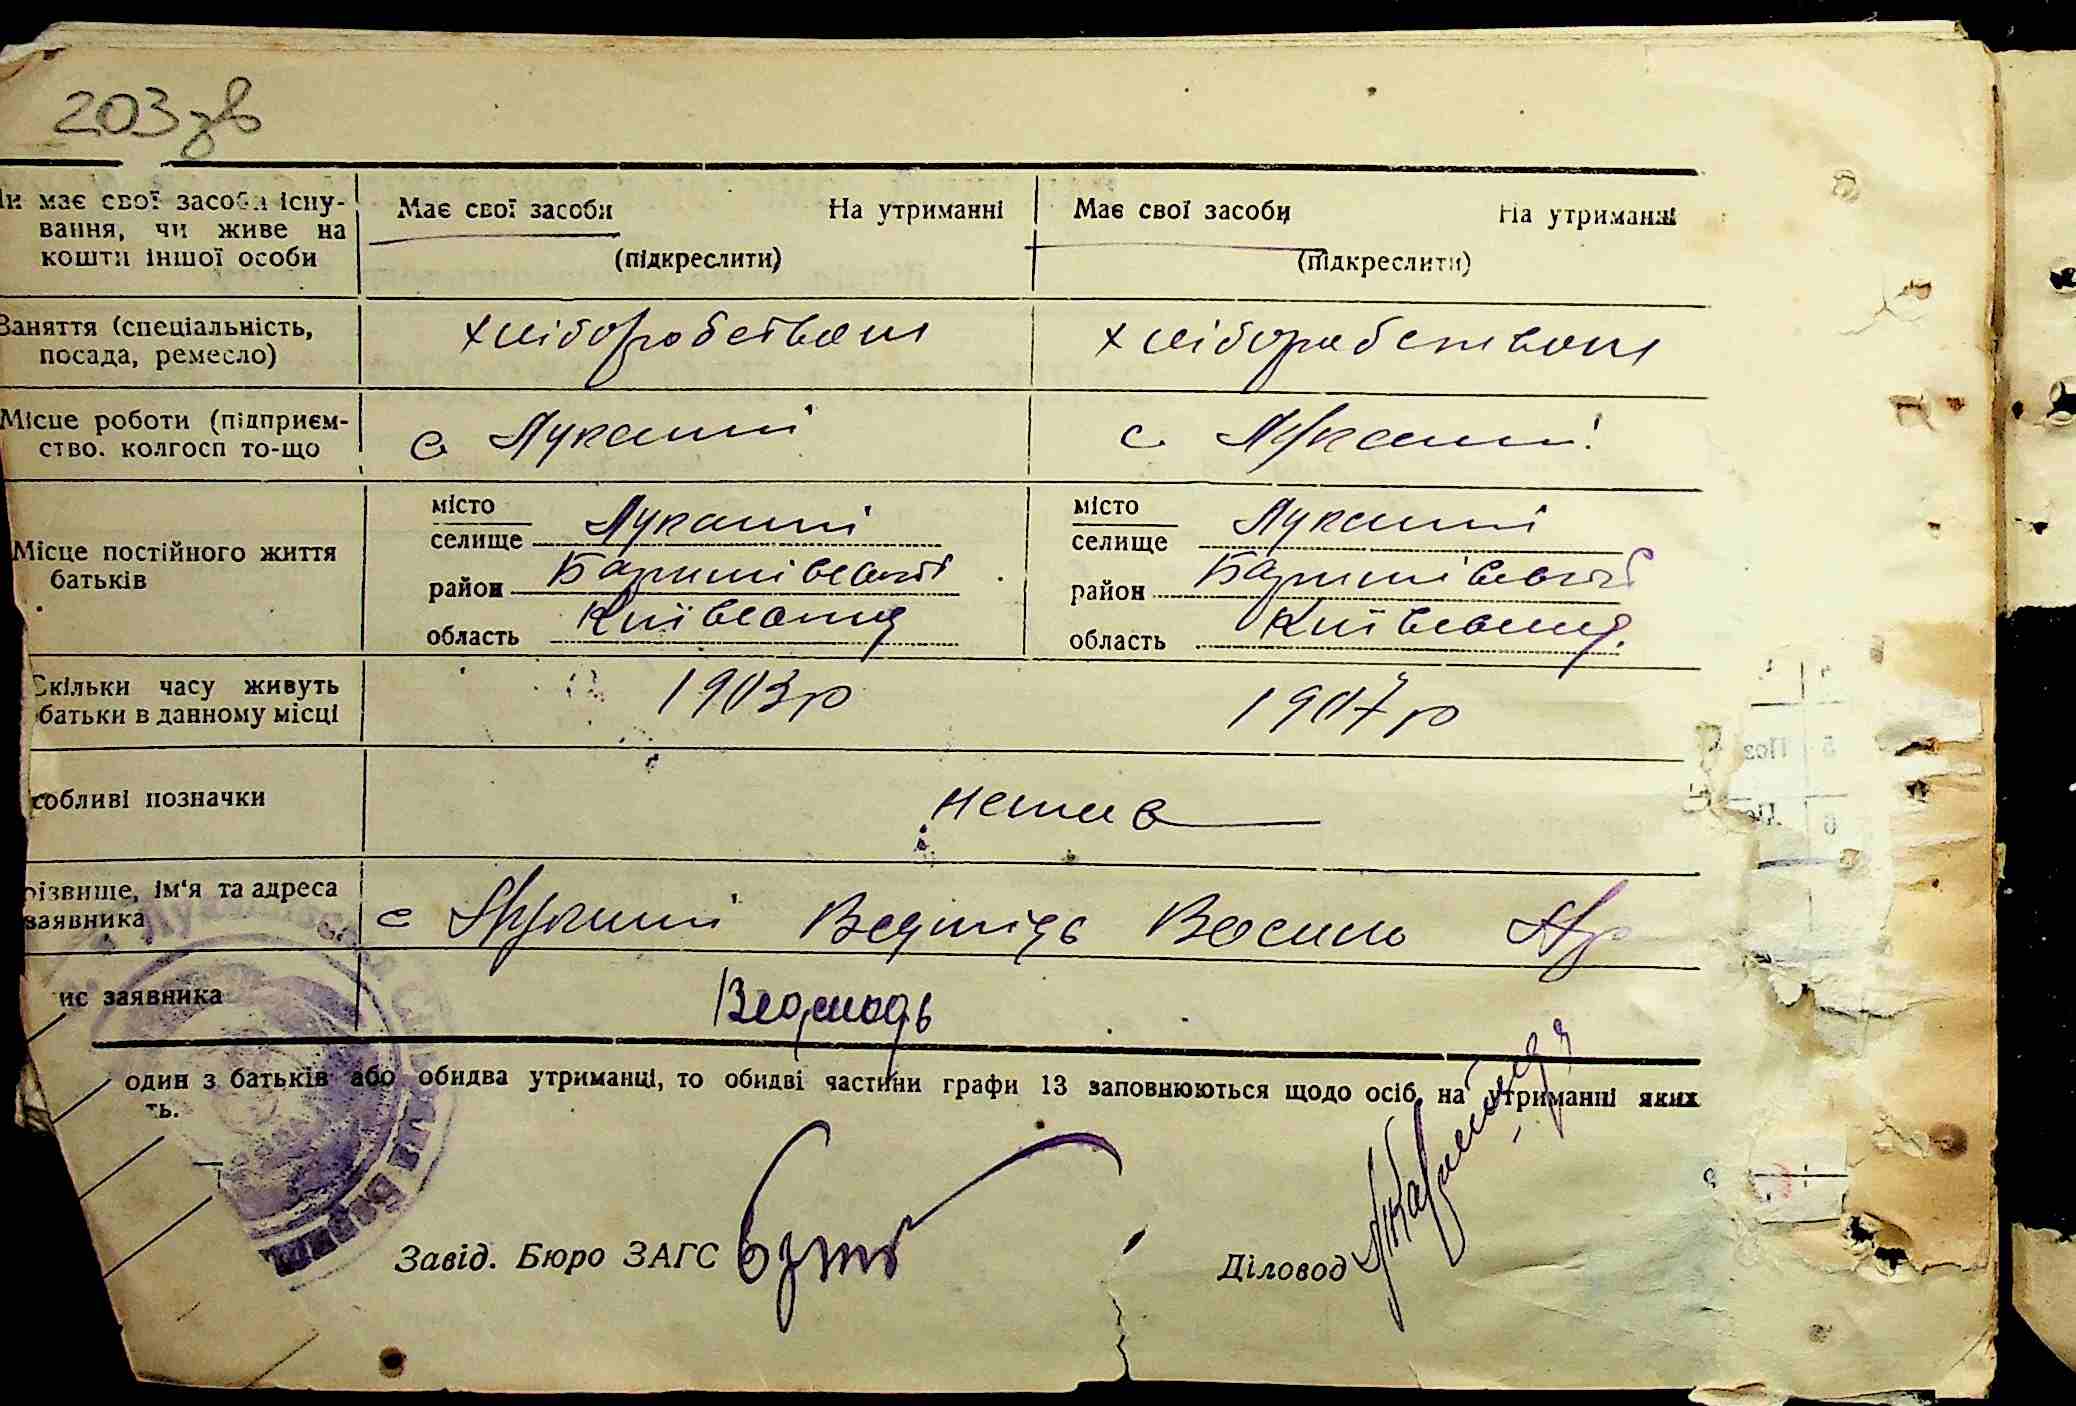 203 зв
Чи має свої засоби існу-
вання, чи живе на
кошти іншої особи
Має свої засоби На утриманні
(підкреслити)
Має свої засоби На утриманні
(підкреслити)
Заняття (спеціальність,
посада, ремесло)
хліборобством
хліборобством
Місце роботи (підприєм-
ство. колгосп то-що
с Лукаші
с. Лукаші
Місце постійного життя
батьків
місто
селище Лукаші
район Баришівської
область Київська
місто
селище Лукаші
район Баришівської
область
Скільки часу живуть
батьки в данному місці
1903р
1907р
собливі позначки
нема
різвище, ім'я та адреса
заявника
с Лукаші Ведмідь Василь
ис заявника
Ведмідь
один з батьків або обидва утриманці, то обидві частини графи 13 заповнюються щодо осіб, на утриманні яких
ть.
Завід. Бюро ЗАГС
Діловод